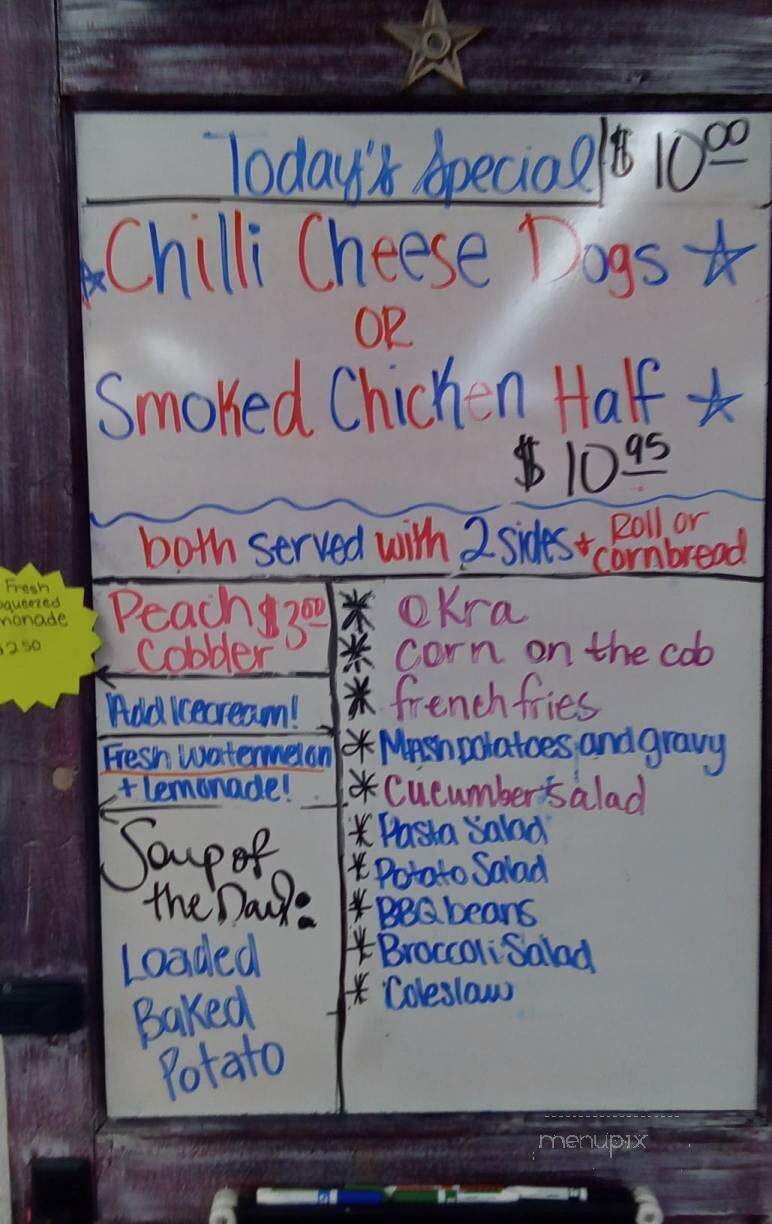 Today's Special $ 10.00
Chilli Cheese Dogs
OR
Smoked Chicken Half
$ 10.95
both served with 2 sides + Roll or cornbread
Peach $3.00
Cobbler
Add Icecream!
Fresh Watermelon
+ Lemonade!
Soup of
the Day:
Loaded
Baked
Potato
* Okra
* corn on the cob
* french fries
* Mash potatoes and gravy
* Cucumber salad
* Pasta Salad
* Potato Salad
* BBQ beans
* Broccoli Salad
* Coleslaw
Fresh
squeezed
monade
$2.50
menupix